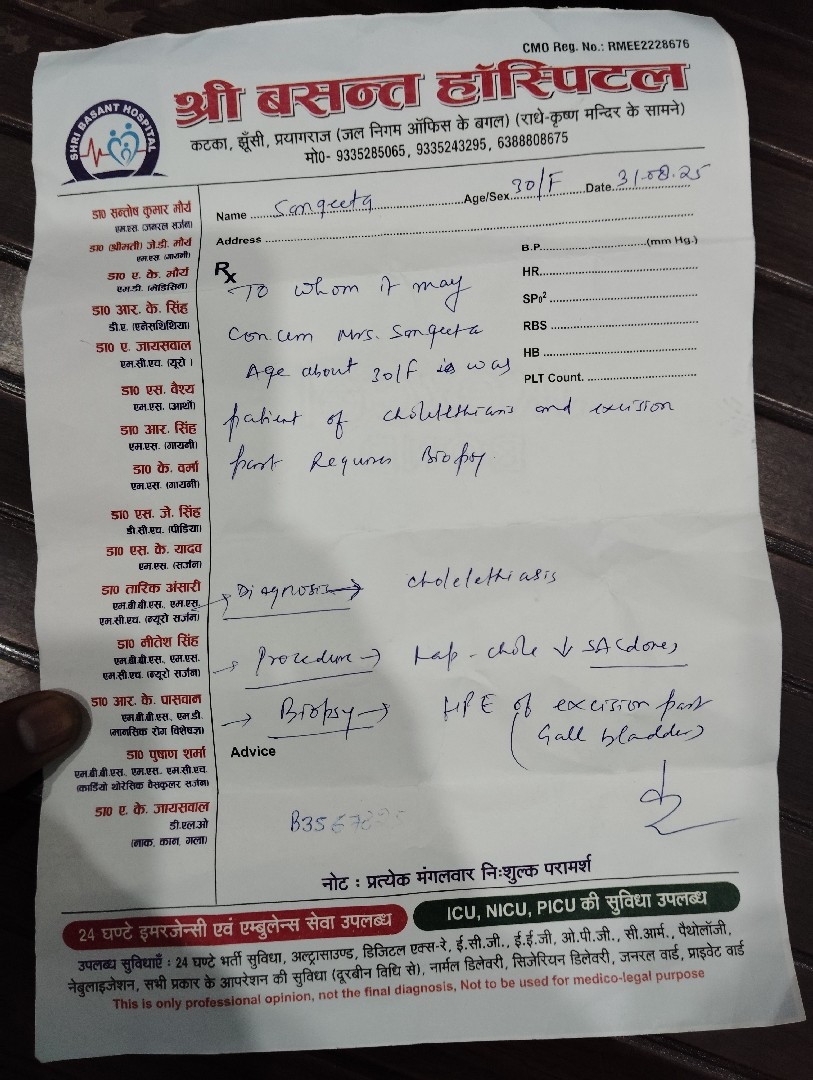 CMO Reg. No.: RMEE2228676
श्री बसन्त हॉस्पिटल
SHRI BASANT HOSPITAL
कटका, झूँसी, प्रयागराज (जल निगम ऑफिस के बगल) (राधे-कृष्ण मन्दिर के सामने)
मो0- 9335285065, 9335243295, 6388808675
Name Sangeeta Age/Sex 30/F Date 31.08.25
Address
B.P. (mm Hg.)
HR
SP0²
RBS
HB
PLT Count.
Rx
To whom it may
Concern Mrs. Sangeeta
Age about 30/F is was
patient of and excision
part Requires Biopsy
Diagnosis → cholelethiasis
→ Procedure → Lap-chole ↓ SA
→ Biopsy → HPE of excision part
(Gall bladder)
Advice
B35
डा0 सन्तोष कुमार मौर्य
एम.एस. (जनरल सर्जन)
डा0 (श्रीमती) जे.डी. मौर्य
एम.एस. (गायनी)
डा0 ए. के. मौर्य
एम.डी. (मेडिसिन)
डा0 आर. के. सिंह
डी.ए. (एनेसथिथिया)
डा0 ए. जायसवाल
एम.सी.एच. (यूरो)
डा0 एस. वैश्य
एम.एस. (आर्थो)
डा0 आर. सिंह
एम.एस. (गायनी)
डा0 के. वर्मा
एम.एस. (गायनी)
डा0 एस. जे. सिंह
डी.सी.एच. (पीडिया)
डा0 एस. के. यादव
एम.एस. (सर्जन)
डा0 तारिक अंसारी
एम.बी.बी.एस., एम.एस.
एम.सी.एच. (न्यूरो सर्जन)
डा0 नीतेश सिंह
एम.बी.बी.एस., एम.एस.
एम.सी.एच. (न्यूरो सर्जन)
डा0 आर. के. पासवान
एम.बी.बी.एस., एम.डी.
(मानसिक रोग विशेषज्ञ)
डा0 पुषाण शर्मा
एम.बी.बी.एस., एम.एस., एम.सी.एच.
(कार्डियो थोरेसिक वैसकुलर सर्जन)
डा0 ए. के. जायसवाल
डी.एल.ओ
(नाक, कान, गला)
नोट : प्रत्येक मंगलवार निःशुल्क परामर्श
24 घण्टे इमरजेन्सी एवं एम्बुलेन्स सेवा उपलब्ध
ICU, NICU, PICU की सुविधा उपलब्ध
उपलब्ध सुविधाएँ : 24 घण्टे भर्ती सुविधा, अल्ट्रासाउण्ड, डिजिटल एक्स-रे, ई.सी.जी., ई.ई.जी, ओ.पी.जी., सी.आर्म., पैथोलॉजी,
नेबुलाइजेशन, सभी प्रकार के आपरेशन की सुविधा (दूरबीन विधि से), नार्मल डिलेवरी, सिजेरियन डिलेवरी, जनरल वार्ड, प्राइवेट वार्ड
This is only professional opinion, not the final diagnosis, Not to be used for medico-legal purpose